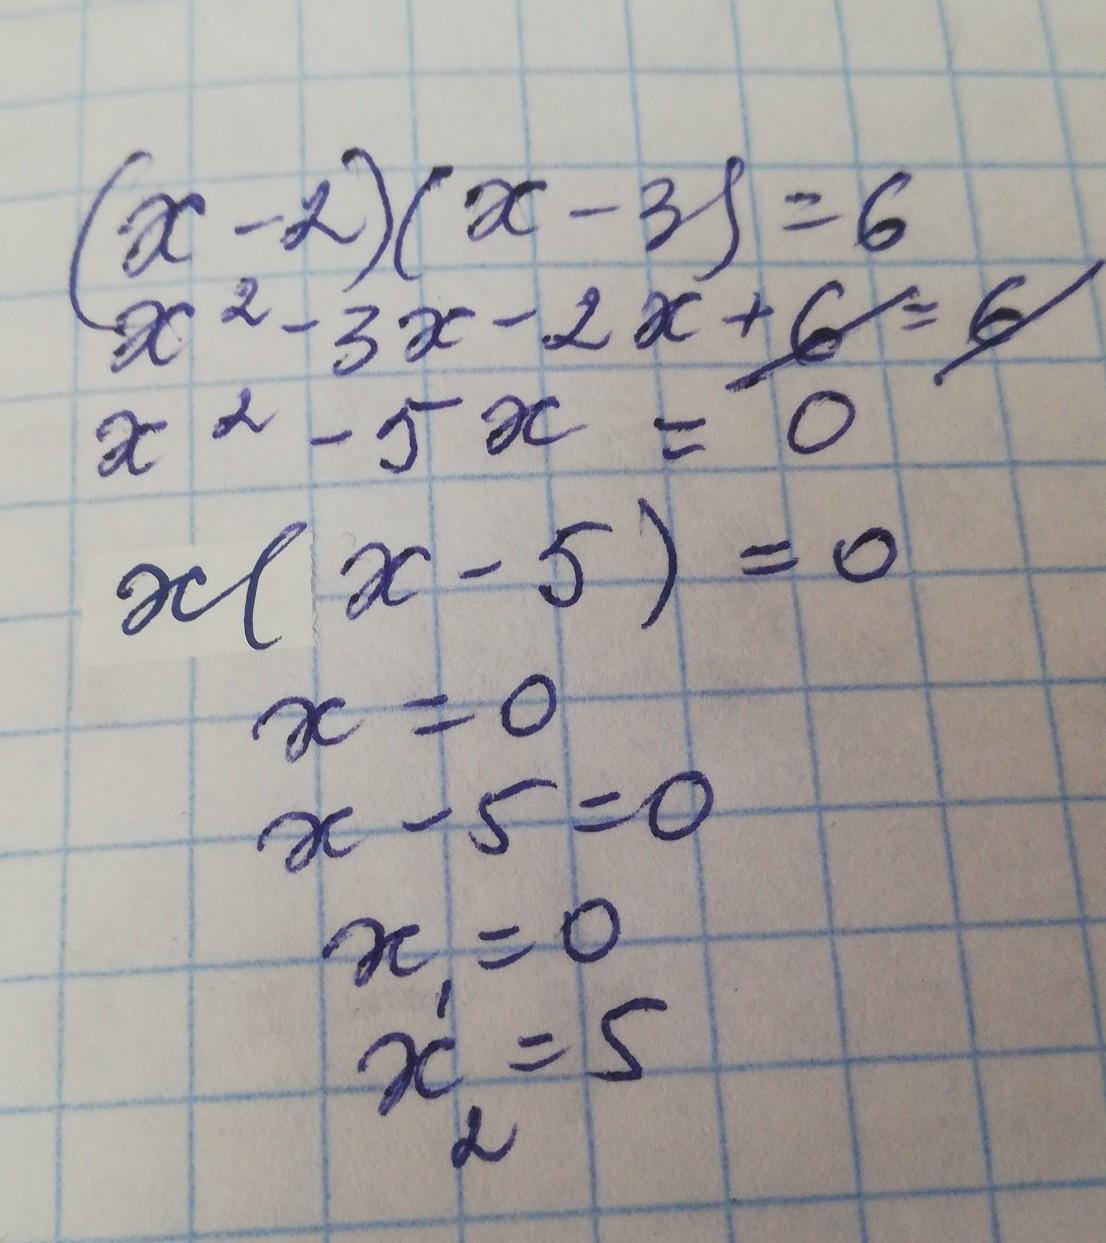 (x - 2)(x - 3) = 6
x² - 3x - 2x + 6 = 6
x² - 5x = 0
x(x - 5) = 0
x = 0
x - 5 = 0
x₁ = 0
x₂ = 5